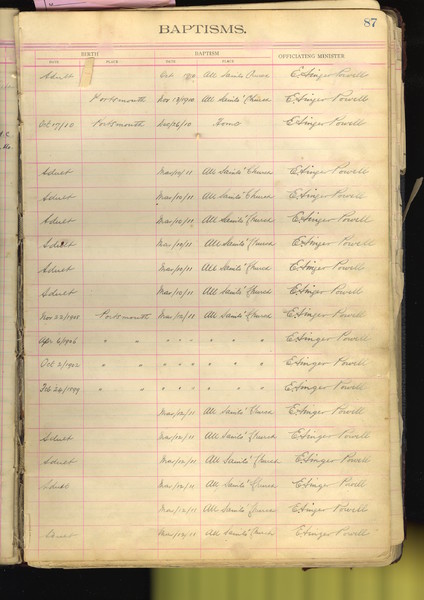 87
BAPTISMS.
BIRTH BAPTISM OFFICIATING MINISTER
DATE PLACE DATE PLACE
Adult Oct All Saints E. Singer Powell
Portsmouth Nov 13/1910 All Saints' Church E. Singer Powell
Oct 17/10 Portsmouth Dec/26/10 Home E. Singer Powell
Adult Mar/12/11 All Saints' Church E. Singer Powell
Adult Mar/12/11 All Saints' Church E. Singer Powell
Adult Mar/12/11 All Saints' Church E. Singer Powell
Adult Mar/12/11 All Saints' Church E. Singer Powell
Adult Mar/12/11 All Saints' Church E. Singer Powell
Adult Mar/12/11 All Saints' Church E. Singer Powell
Nov 22/1905 Portsmouth Mar/12/11 All Saints' Church E. Singer Powell
Apr 6/1906 " " " " " " " E. Singer Powell
Oct 2/1902 " " " " " " " E. Singer Powell
Feb 24/1899 " " " " " " " E. Singer Powell
Mar/12/11 All Saints' Church E. Singer Powell
Adult Mar/12/11 All Saints' Church E. Singer Powell
Adult Mar/12/11 All Saints' Church E. Singer Powell
Adult Mar/12/11 All Saints' Church E. Singer Powell
Mar/12/11 All Saints' Church E. Singer Powell
Adult Mar/12/11 All Saints' Church E. Singer Powell